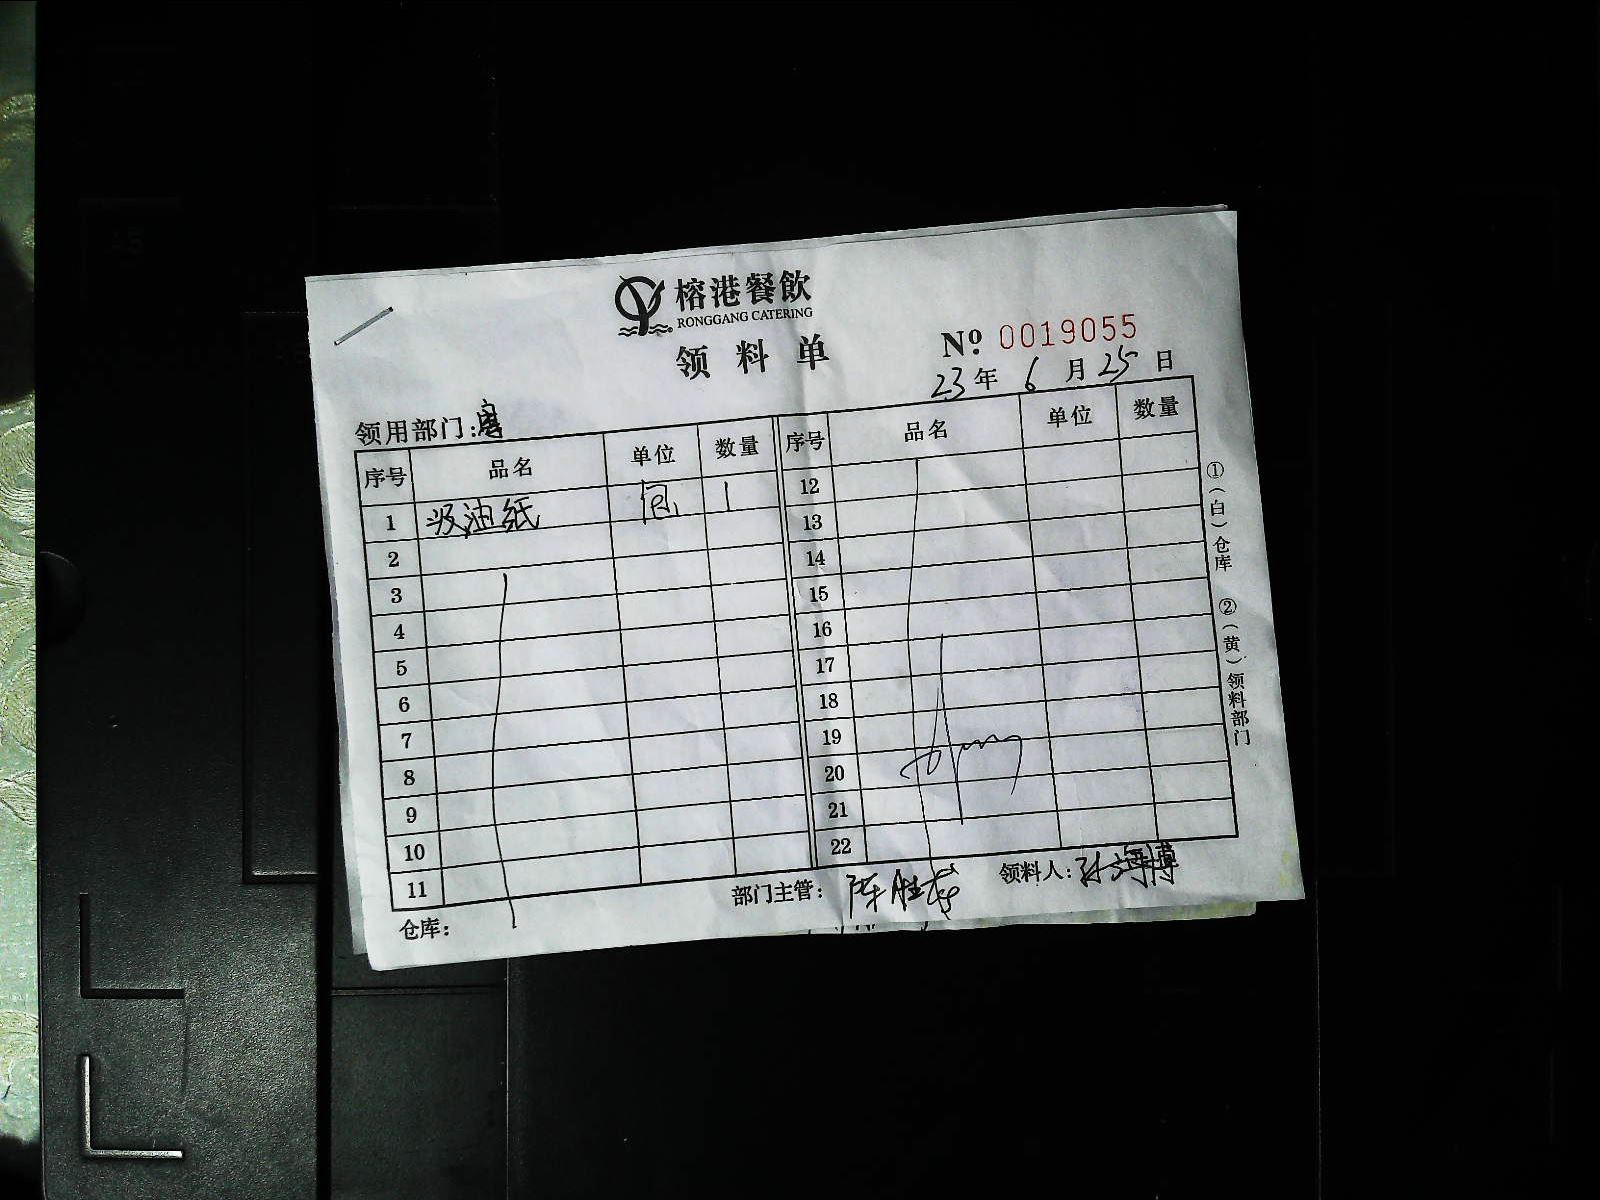 榕港餐飲
RONGGANG CATERING
领料单
Nº 0019055
23年 6月 25日
领用部门:
序号 品名 单位 数量 序号 品名 单位 数量
1 吸油纸 包 1 12
2 13
3 14
4 15
5 16
6 17
7 18
8 19
9 20
10 21
11 22
仓库： 部门主管： 陈胜 领料人: 孙海博
①(白)仓库 ②(黄)领料部门